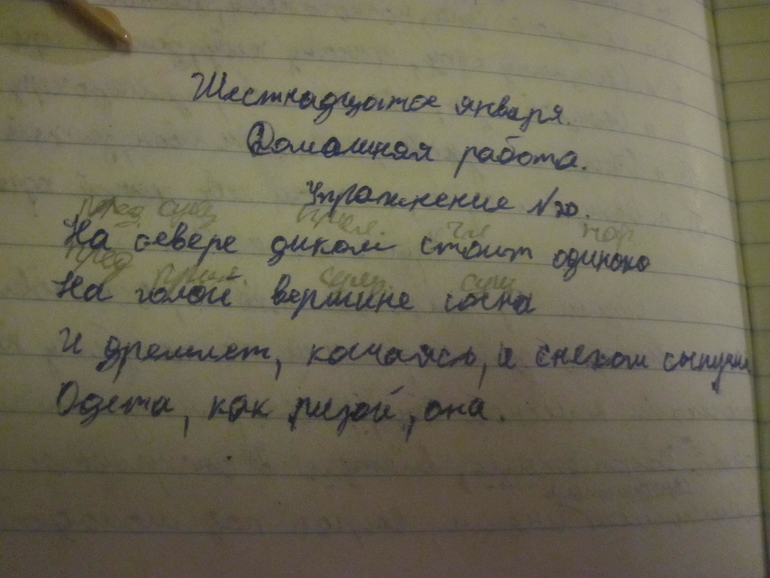 Шестнадцатое января.
Домашняя работа.
Упражнение №20.
пред. сущ. прил. гл нар
На севере диком стоит одиноко
пред прил. сущ. сущ
На голой вершине сосна
И дремлет, качаясь, и снегом сыпучим
Одета, как ризой, она.